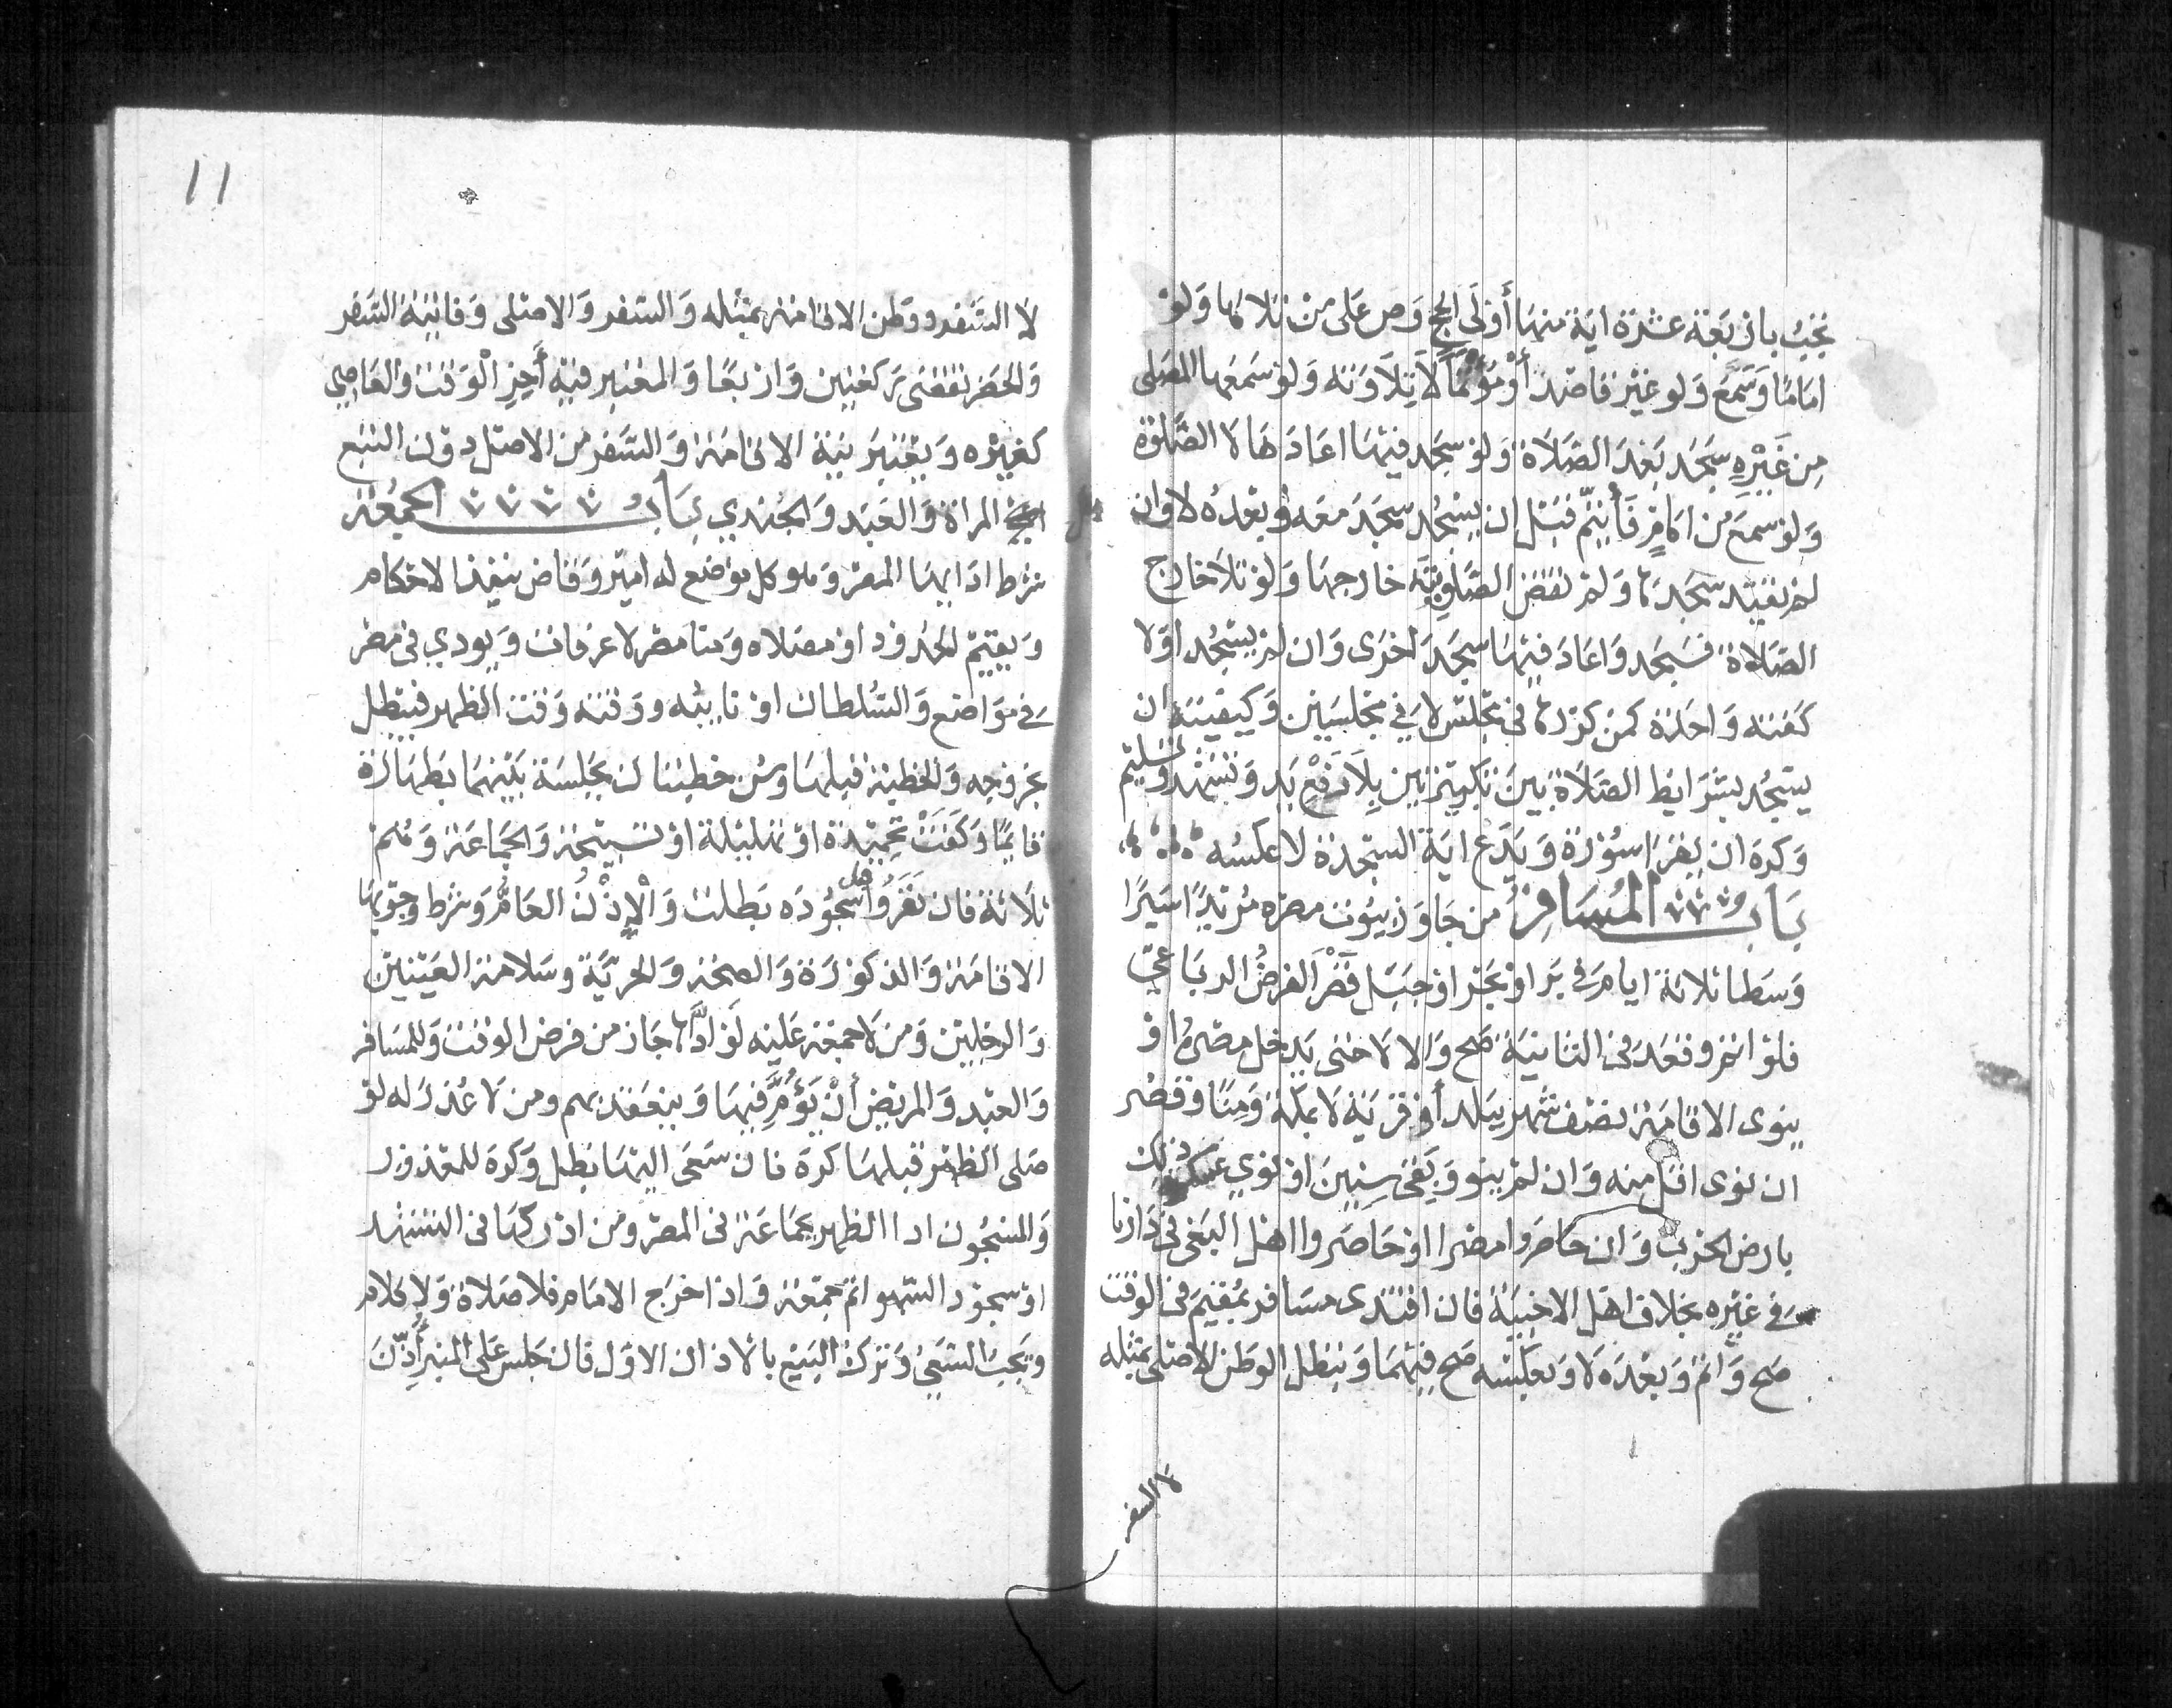 تجب باربعة عشرة اية منها أولى الحج وص على من تلاها ولو
اماما وسمع ولو غير قاصد أو مؤتما لا بتلاوته ولو سمعها المصلى
من غيره سجد بعد الصلاة ولو سجد فيها اعادها لا الصلوة
ولو سمع من امام فأتم قبل ان يسجد سجد معه وبعده لا وان
لم يقتد سجدها ولم تقض الصلوية خارجها ولو تلا خارج
الصلاة فسجد واعاد فيها سجد اخرى وان لم يسجد اولا
كفته واحدة كمن كررها فى مجلس لا فى مجلسين وكيفيته ان
يسجد بشرايط الصلاة بين تكبيرتين بلا رفع يد وتشهد وتسليم
وكره ان يقرا سورة ويدع اية السجدة لا عكسه
باب المسافر من جاوز بيوت مصره مريدا سيرا
وسطا ثلاثة ايام فى بر او بحر او جبل قصر الفرض الرباعي
فلو اتم وقعد فى الثانية صح والا لا حتى يدخل مصره او
ينوى الاقامة نصف شهر ببلد أو قرية لا بمكة ومنا وقصر
ان نوى اقل منه وان لم ينو وبقى سنين او نوي عسكر ذلك
بارض الحرب وان حاصروا مصرا او حاصروا اهل البغى فى دارنا
فى غيره بخلاف اهل الاخبية فان اقتدى مسافر بمقيم فى الوقت
صح واتم وبعده لا وبعكسه صح فيهما ويبطل الوطن الاصلى بمثله
لا السفر
١١
لا السفر ووطن الاقامة بمثله والسفر والاصلى وفايتة السفر
والحضر تقضى ركعتين واربعا والمعتبر فيه أخر الوقت والعاصي
كغيره ويعتبر نية الاقامة والسفر من الاصل دون التبع
المراة والعبد والجندي باب الجمعة
شرط ادايها المصر وهو كل موضع له امير وقاض ينفذ الاحكام
ويقيم الحدود او مصلاه ومنا مصر لا عرفات ويودي فى مصر
فى مواضع والسلطان او نايبه ووقته وقت الظهر فيبطل
بخروجه والخطبة قبلها وسن خطبتان بجلسة بينهما بطهارة
قايما وكفت تحميدة او تهليلة او تسبيحة والجماعة وهم
ثلاثة فان نفروا قبل سجوده بطلت والإذن العام وشرط وجوبها
الاقامة والذكورة والصحة والحرية وسلامة العينين
والرجلين ومن لا جمعة عليه لو ادّاها جاز من فرض الوقت وللمسافر
والعبد والمريض أن يؤم فيها وينعقد بهم ومن لا عذر له لو
صلى الظهر قبلها كره فان سعى اليها بطل وكره للمعذور
والمسجون ادا الظهر بجماعة فى المصر ومن ادركها فى التشهد
او سجود السهو اتم جمعة واذا خرج الامام فلا صلاة ولا كلام
ويجب السعي وترك البيع بالاذان الاول فان جلس على المنبر أذّن